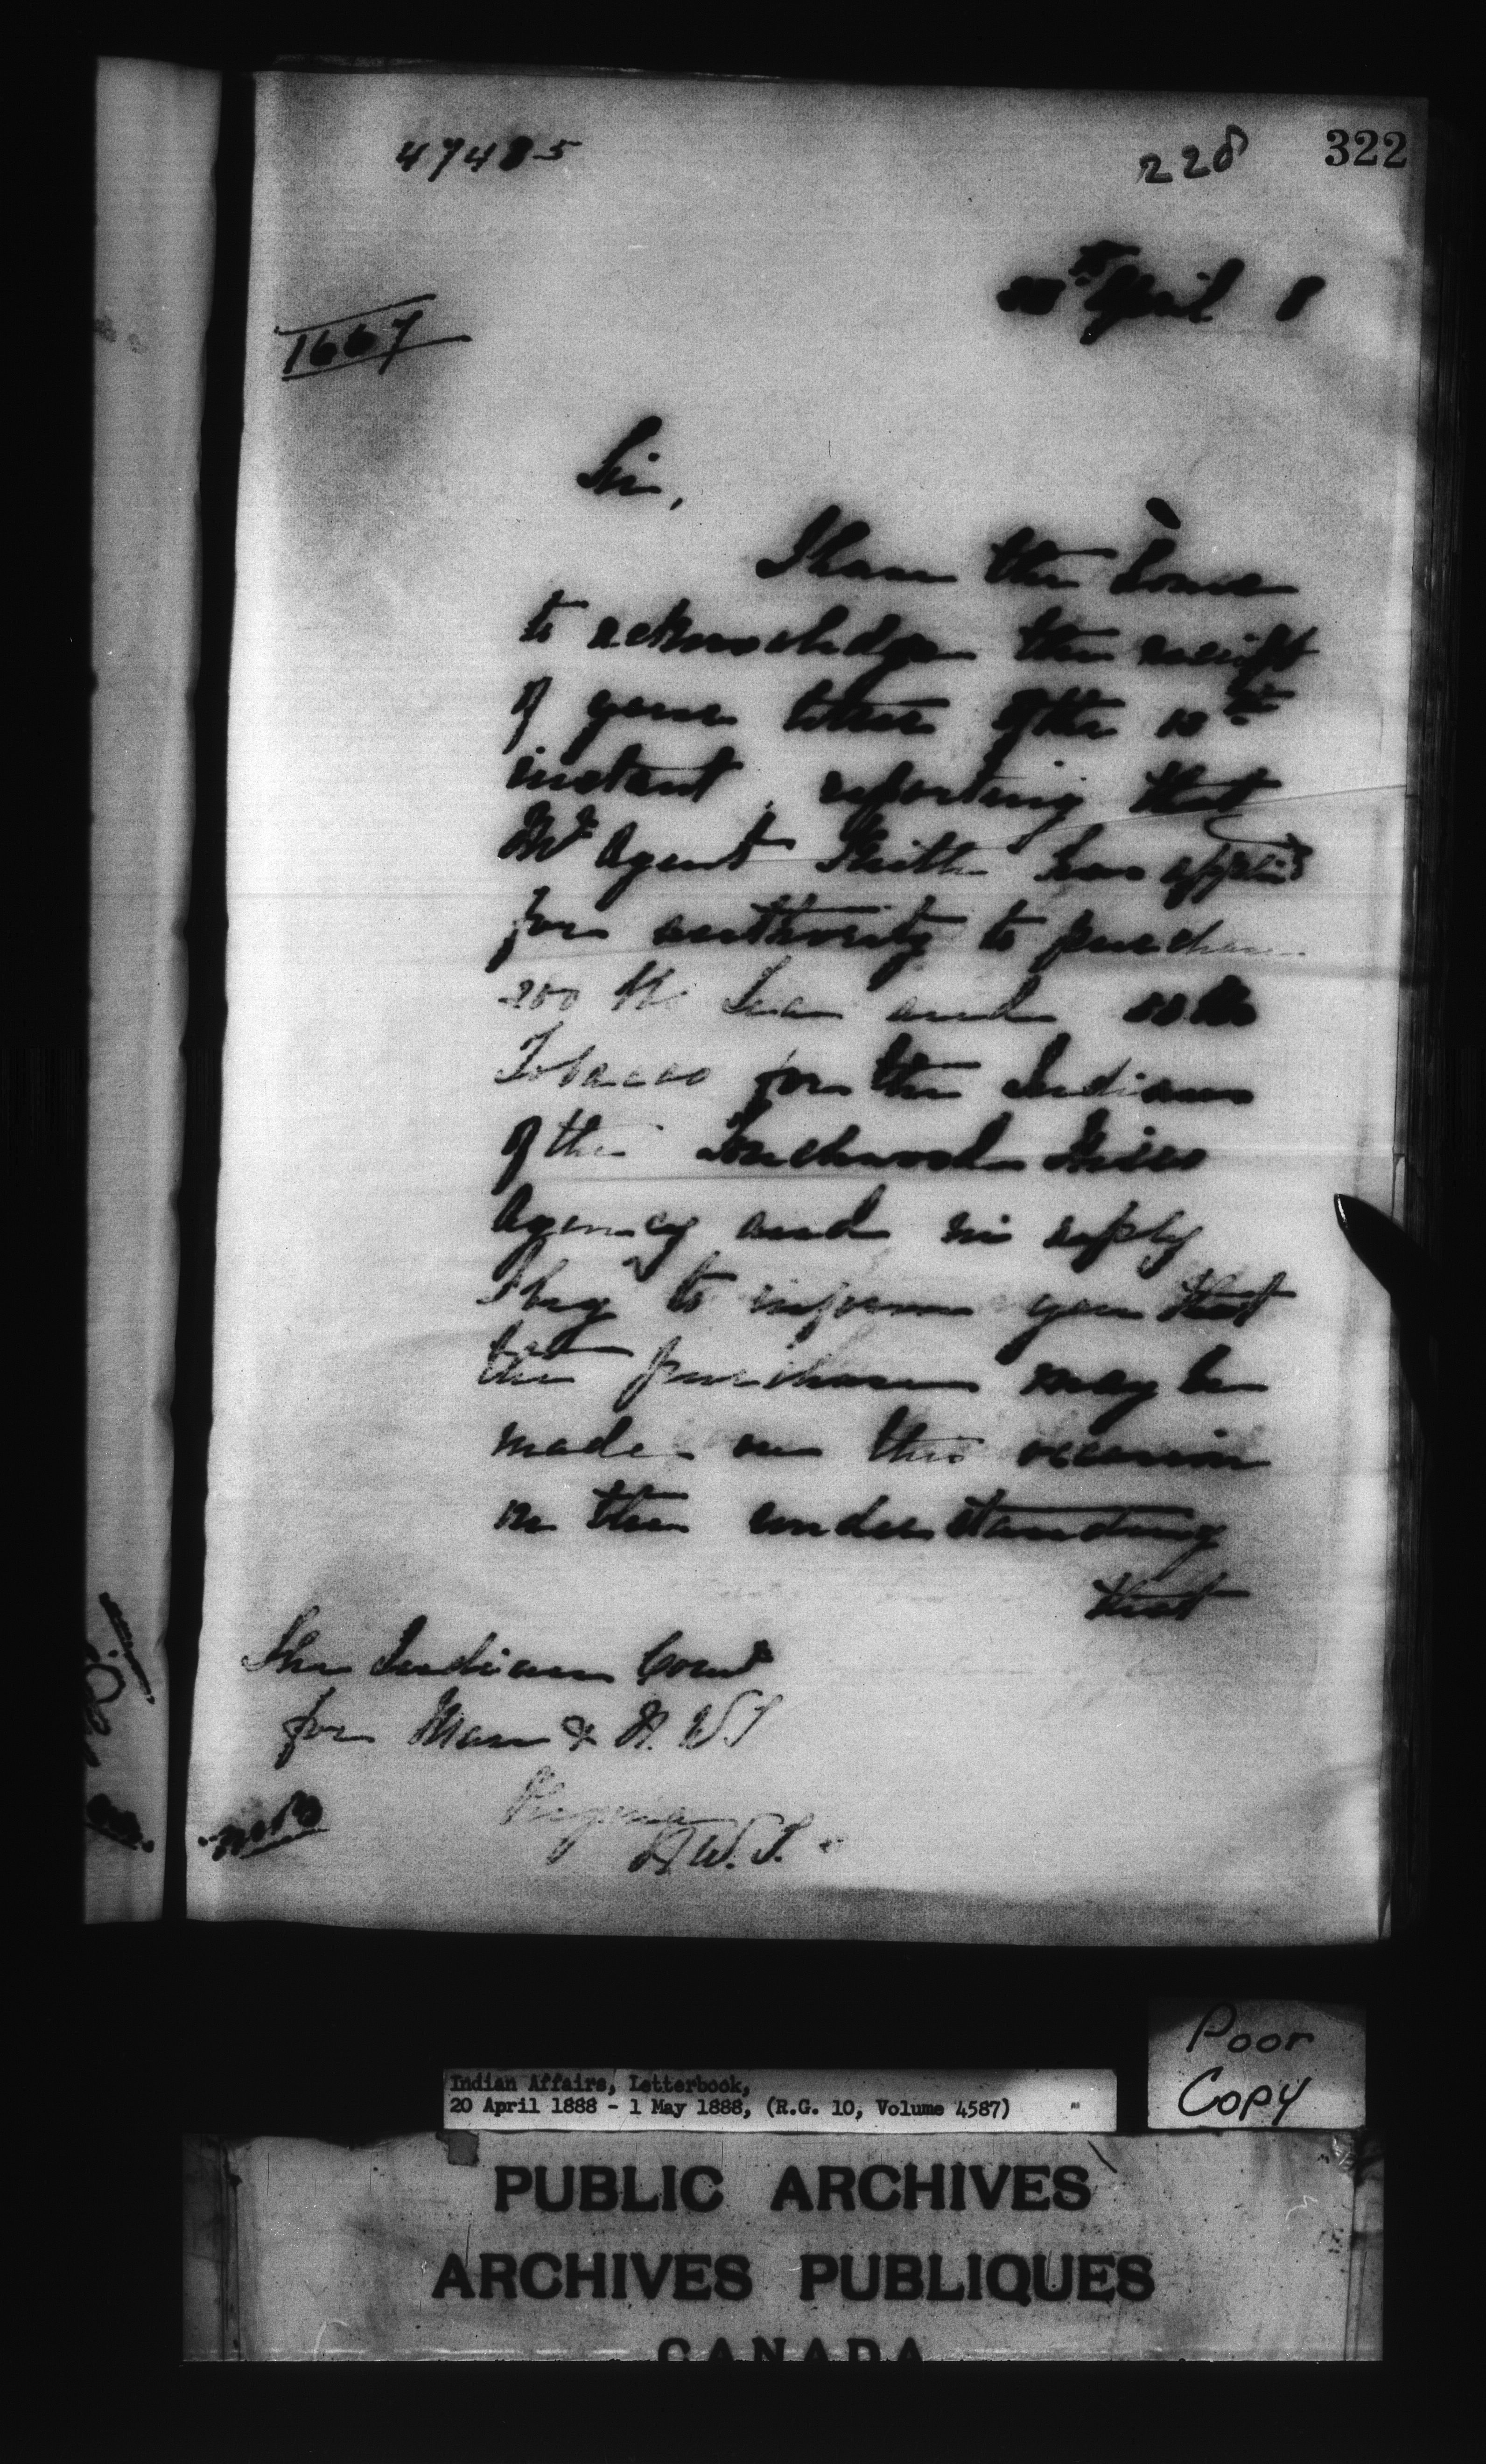 47485
228 322
April 8
1667
Sir,
I have the honor
to acknowledge the receipt
of your letter of the 10th
instant, reporting that
Mr Agent Keith has applied
for authority to purchase
200 lbs Tea and lbs
Tobacco for the Indians
of the Touchwood Hills
Agency and in reply
I beg to inform you that
the purchase may be
made on this occasion
on the understanding
that
The Indian Comr
for Man & N. W T
Regina
N. W. T.
Poor
Copy
Indian Affairs, Letterbook,
20 April 1888 - 1 May 1888, (R.G. 10, Volume 4587)
PUBLIC ARCHIVES
ARCHIVES PUBLIQUES
CANADA